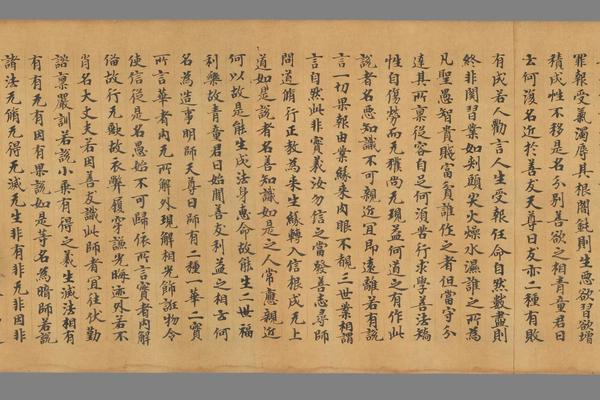 罪報受氣濁辱其根闇鈍則生惡欲習欲增
積戍性不移是名分別善欲之相青童君曰
云何復名近於善友天尊曰友亦二種有敗
有成若人勸言人生受報任命自然數盡則
終非關習業如剡頭尖火燥水濕誰之所為
凡聖愚智貴賤富貧誰作之者但當守分
遠其所稟從容自足何須苦行求學善法矯
性自傷勞而无獲尚无現益何道之有作此
說者名惡知識不可親近宜即遠離若有說
言一切果報由業緣來肉眼不覩三世業相謂
言自然此非實義汝勿信之當發善志尋師
問道脩行正教為來生緣轉入信根成无上
道如是說者名善知識如是之人常應親近
何以故是能生成法身惠命故能生二世福
利樂故青童君曰始聞善友利益之相云何
名為造事明師天尊曰師有二種一華二實
所言華者內无所解外現解相光飾誑物令
使信從是名愚始不可歸依所言實者內解
倫故行无歇故衣弊領穿謙光晦迹外若不
肖名大丈夫若因善友識此師者宜往伏勤
諮稟嚴訓若說小乘有得之義生滅法相有
有有无有因有果說如是等名為暗師若說
諸法无脩无得无滅无生非有非无非因非